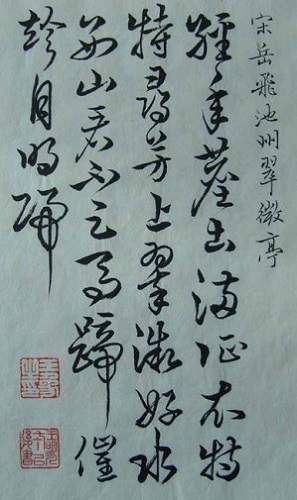 宋岳飛池州翠微亭
經年塵土滿征衣特
特尋芳上翠微好水
好山看不足馬蹄催
趁月明歸